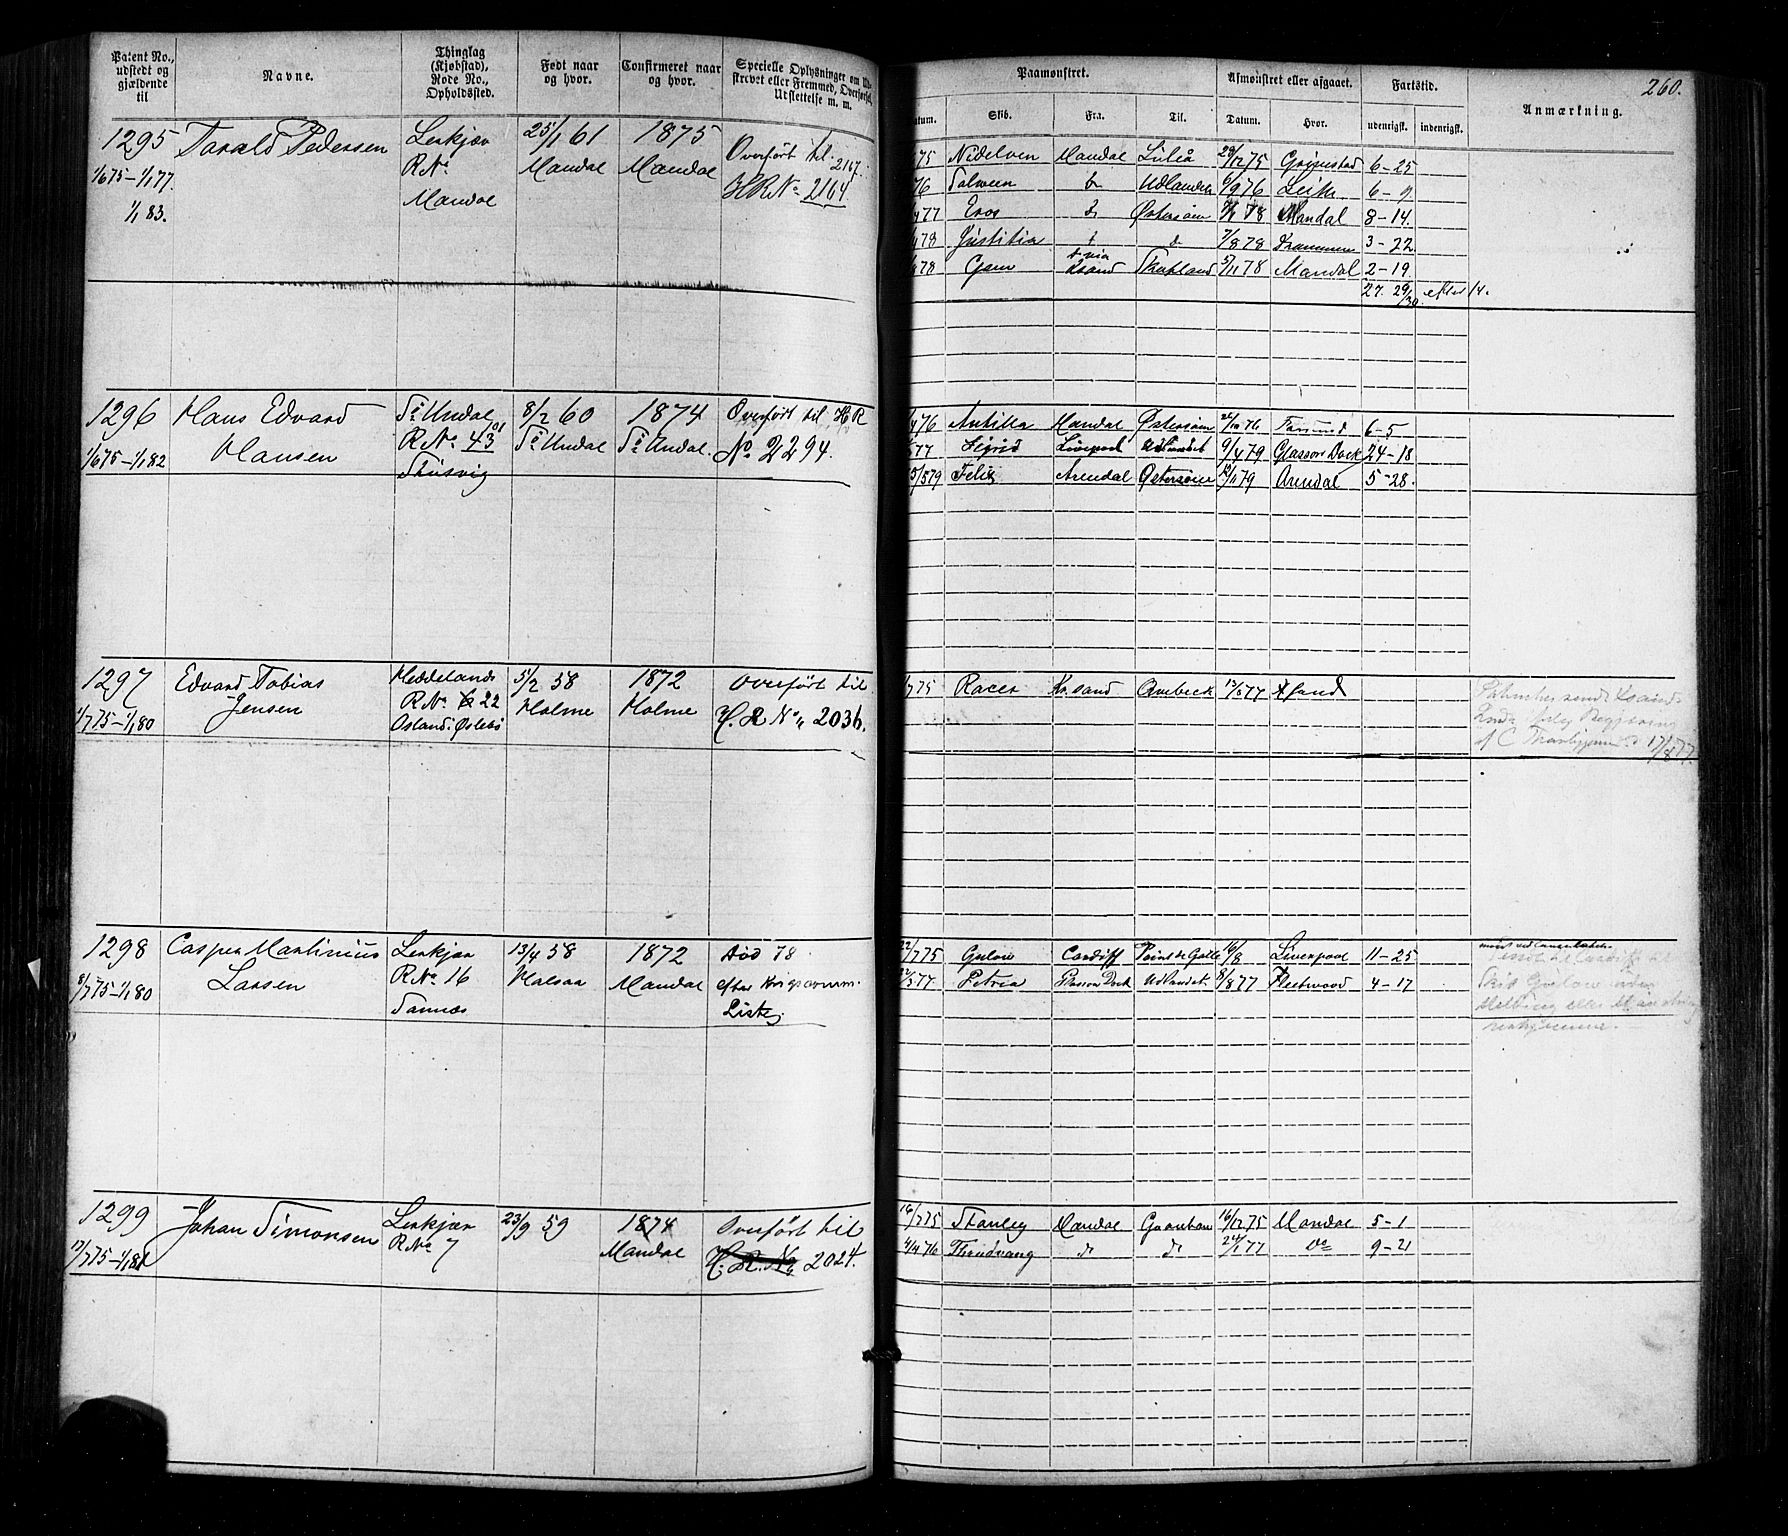 260.
Patent No., udstedt og gjældende til
Navne.
Thinglag (Kjøbstad), Rode No., Opholdssted.
Født naar og hvor.
Confirmeret naar og hvor.
Specielle Oplysninger om
Udslettelse m. m.
Paamønstret.
Afmønstret eller afgaaet.
Fartstid.
Anmærkning.
Skib. Fra. Til. Datum. Hvor. udenrigsk. indenrigsk.
1295 Tarald Pedersen Lerkjær 25/1 61 1875 Overført til 2167.
1/6 75 – 1/1 77. R No Mandal Mandal H R No 2164
1/1 83. Mandal
75 Nidelven Mandal Luleå 29/12 75 Grimstad 6 – 25
76 Salveen do Udlandet 6/9 76 Leith 6 – 9
77 Eros do Østersøen 78 Mandal 8 – 14.
78 Justitia d 7/8 78 Drammen 3 – 22
78 Gem Skotland 5/11 78 Mandal 2 – 19.
27. 29/30 efter 14.
1296 Hans Edvard S. Undal 8/2 60 1874 Overført til H R
1/6 75 – 1/1 82 Hansen R No 43 S. Undal S. Undal. No 2294.
76 Antilla Mandal Østersøen 76 Farsund 6 – 5
77 Sigrid Liverpool Udlandet 9/4 79 Glasson Dock 24 – 18
5/5 79 Felix Arendal Østersøen 79 Arendal 5 – 28.
1297 Edvard Tobias Heddelands 5/2 58 1872 Overført til
1/7 75 – 1/1 80 Jensen R No 22 Holme Holme H. R No. 2036.
Osland. Øslebø
75 Racer Kr.sand Quebeck 77
17/8 77.
1298 Casper Martinius Lerkjær 13/4 58 1872 Død 78
8/7 75 – 1/1 80 Larsen R No 16 Halsaa Mandal efter Krigscomm.
Sannæs Liste
22/7 75 Cardiff Point de Galle 16/8 Liverpool 11 – 25
77 Petria Glasson Dock Udlandet 8/8 77 Fleetwood 4 – 17
1299 Johan Simonsen Lerkjær 23/9 59 1874 Overført til
75 – 1/1 81 R No 7 Mandal H. R. No 2024.
16/7 75 Stanley Mandal 16/12 75 Mandal 5 – 1
4/4 76 Thrudvang do do 24/1 77 Do 9 – 21